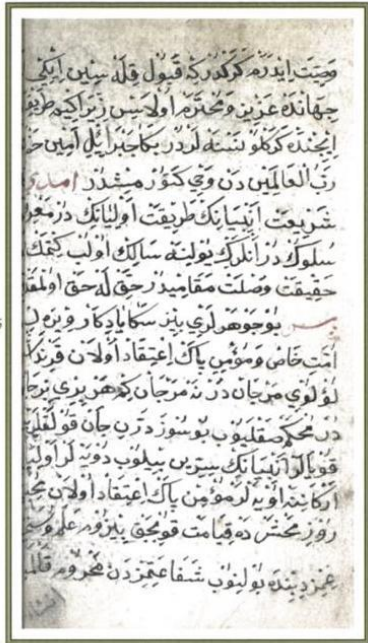 وصيت ايدرم كركدركه قبول قله سين ايكى
جهانده عزيز ومحترم اولاسن زيرا كيم طريق
ايچنده كركلو نسنه لردر بكا جبرائيل امين
رب العالمين دن وحى كتورمشدر امدى
شريعت انبيانك طريقت اوليانك در
سلوك در انلرك يولينه سالك اولب كتمك
حقيقت وصلت مقاميدر حق له حق اولمق
بس بو جوهرلرى بنز سكا يادكار ويره
امت خاص ومؤمن پاك اعتقاد اولان
لؤلوى مرجان در نه مرجان كم هر برى
در محكم صقليوب بو سوز درن جان قولقلر
انبيانك سترين بيلوب دويه لر
اركاننه اويه لر مؤمن پاك اعتقاد اولان
روز محشر ده قيامت قوپجق بنزوم علم
دبنده بولنوب شفاعتمزدن محروم